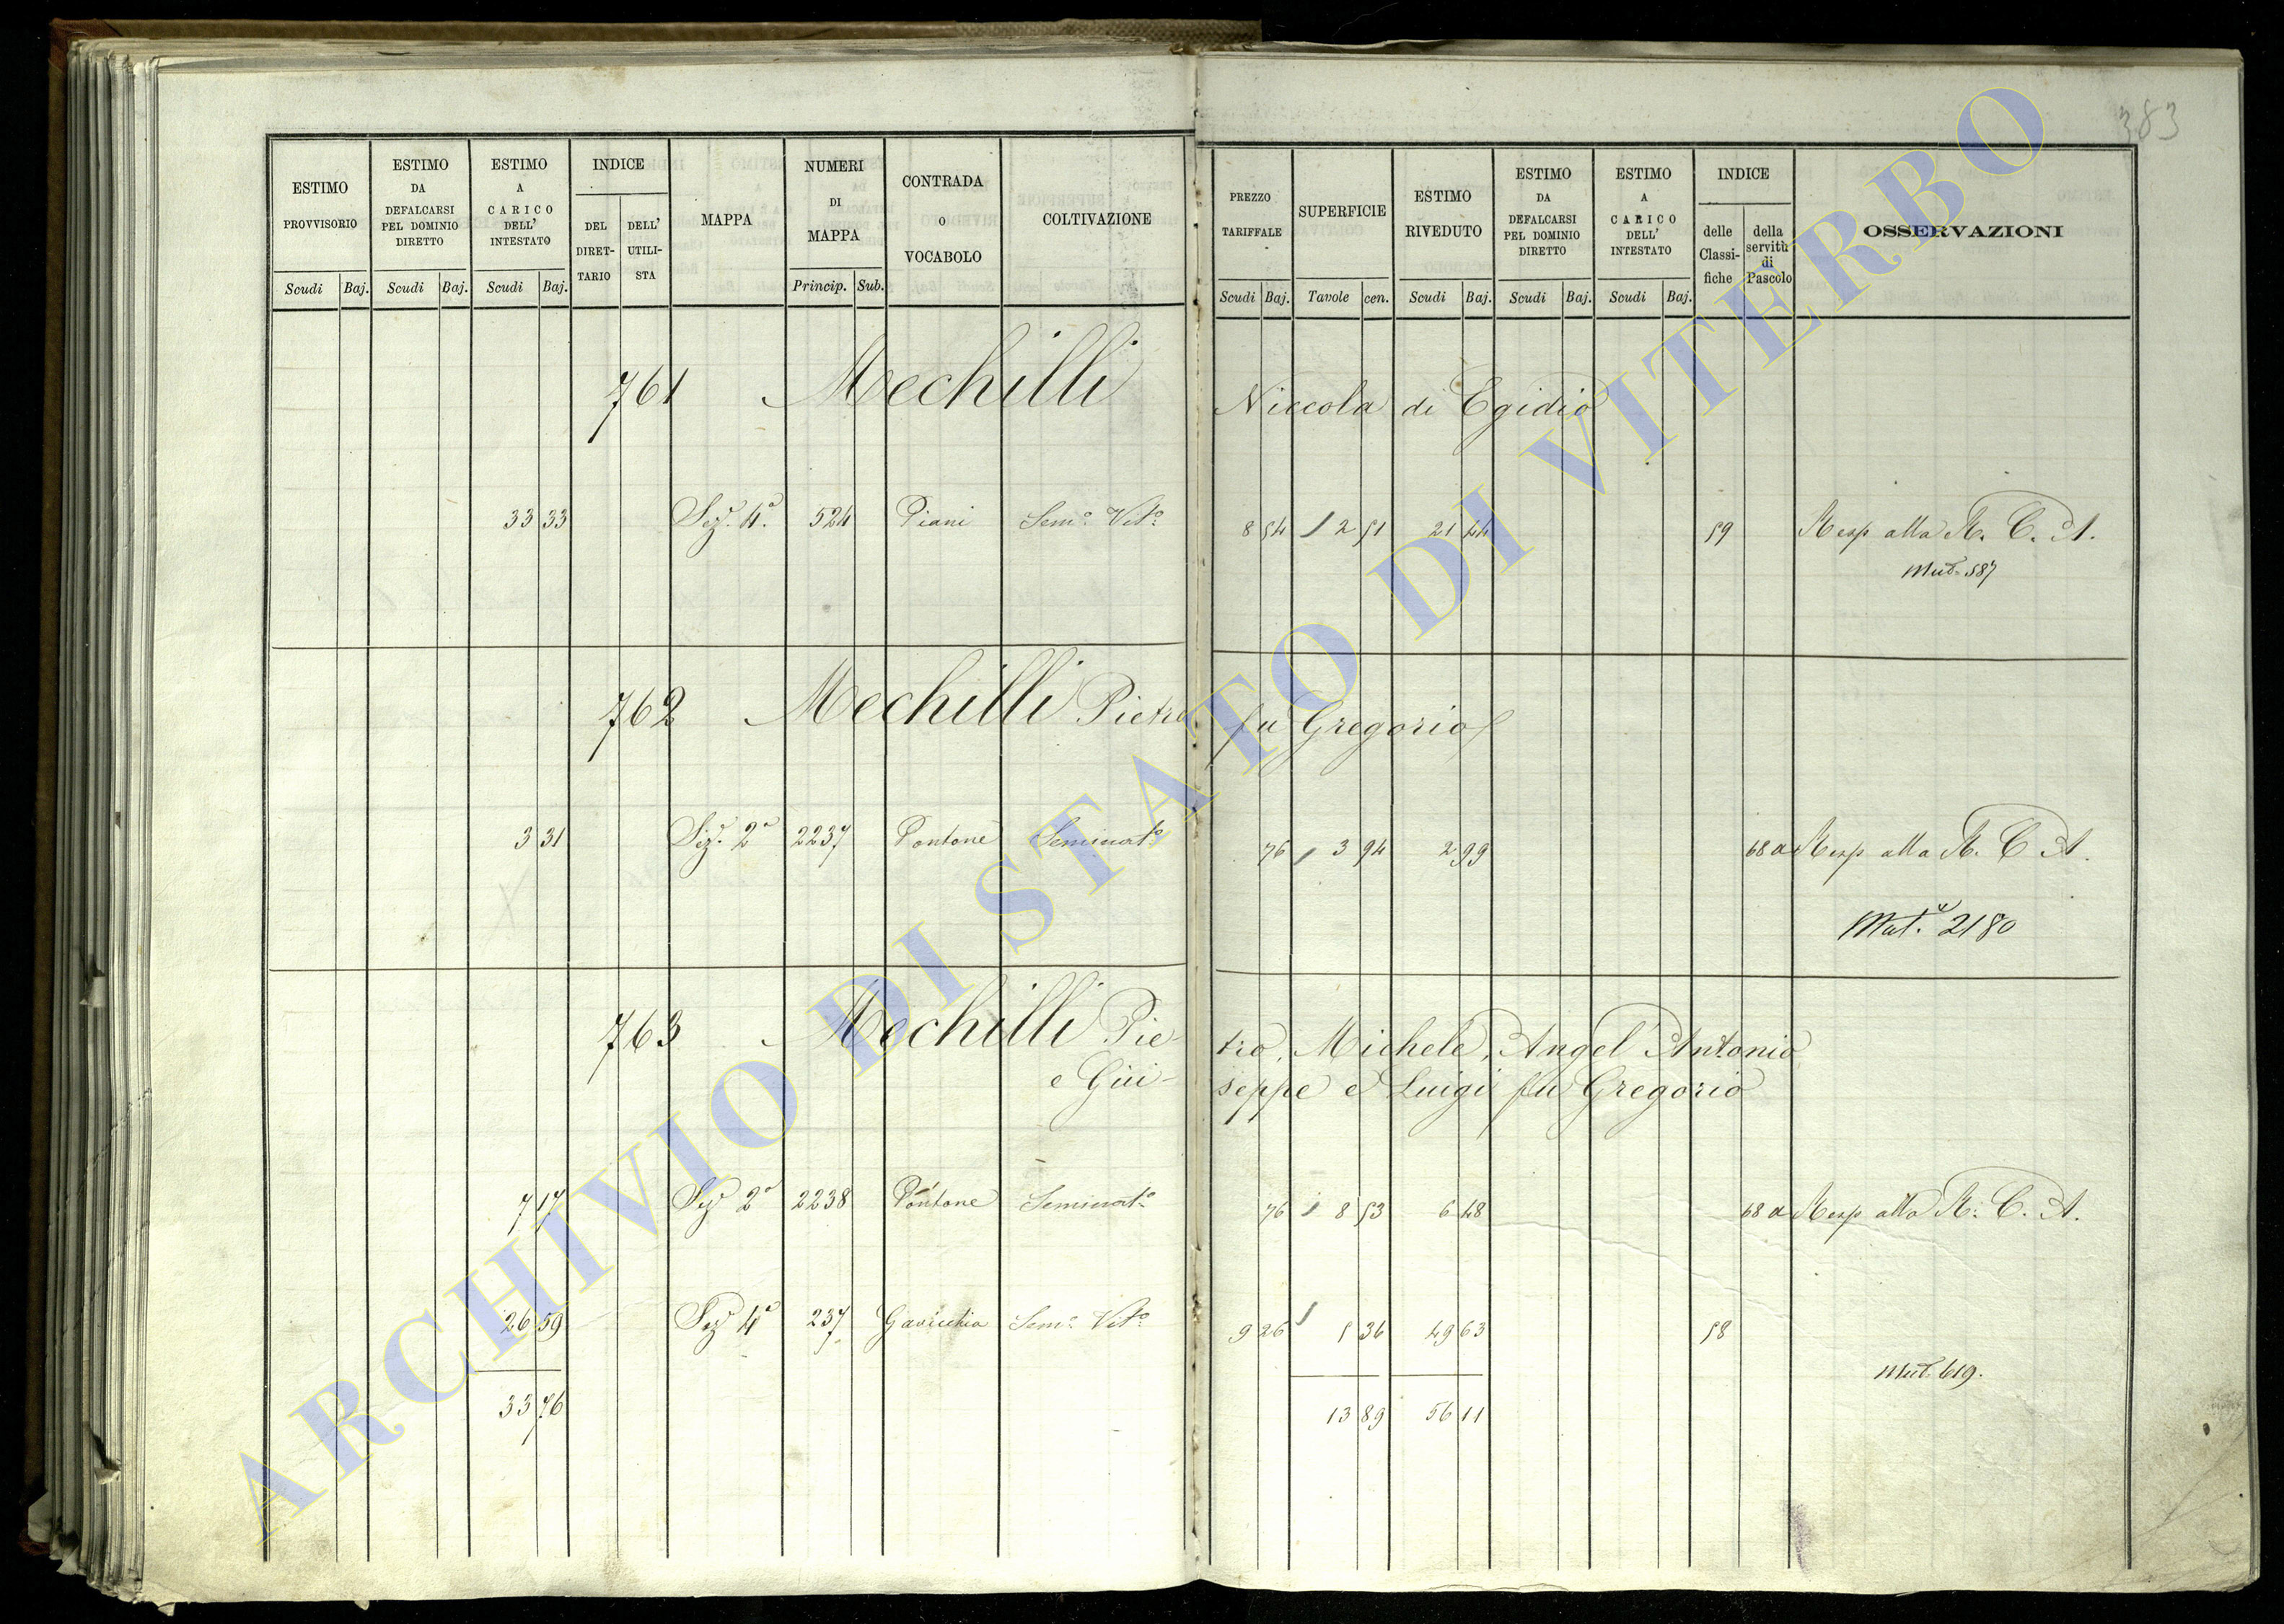 383
ESTIMO PROVVISORIO
ESTIMO DA DEFALCARSI PEL DOMINIO DIRETTO
ESTIMO A CARICO DELL' INTESTATO
INDICE
DEL DIRET-TARIO
DELL' UTILI-STA
MAPPA
NUMERI DI MAPPA
CONTRADA o VOCABOLO
COLTIVAZIONE
PREZZO TARIFFALE
SUPERFICIE
ESTIMO RIVEDUTO
ESTIMO DA DEFALCARSI PEL DOMINIO DIRETTO
ESTIMO A CARICO DELL' INTESTATO
INDICE
delle Classi-fiche
della servitù di Pascolo
OSSERVAZIONI
Scudi Baj. Scudi Baj. Scudi Baj. Princip. Sub. Scudi Baj. Tavole cen. Scudi Baj. Scudi Baj. Scudi Baj.
761 Mechilli Niccola di Egidio
33 33 Sez.e 4a 524 Piani Sem.o Vit.o 8 54 2 51 21 44 59 Resp alla R. C. A.
Mut. 587
762 Mechilli Pietro fu Gregorio
3 31 Sez.e 2a 2237 Pontone Seminat.o 76 3 94 2 99 68 a Resp alla R. C. A.
Mut. 2180
763 Mechilli Pie-tro, Michele, Angel'Antonio
e Giu-seppe e Luigi fu Gregorio
7 17 Sez.e 2a 2238 Pontone Seminat.o 76 8 53 6 48 68 a Resp alla R. C. A.
26 59 Sez.e 4a 237 Gavicchia Sem.o Vit.o 9 26 5 36 49 63 58
Mut. 619.
33 76 13 89 56 11
ARCHIVIO DI STATO DI VITERBO